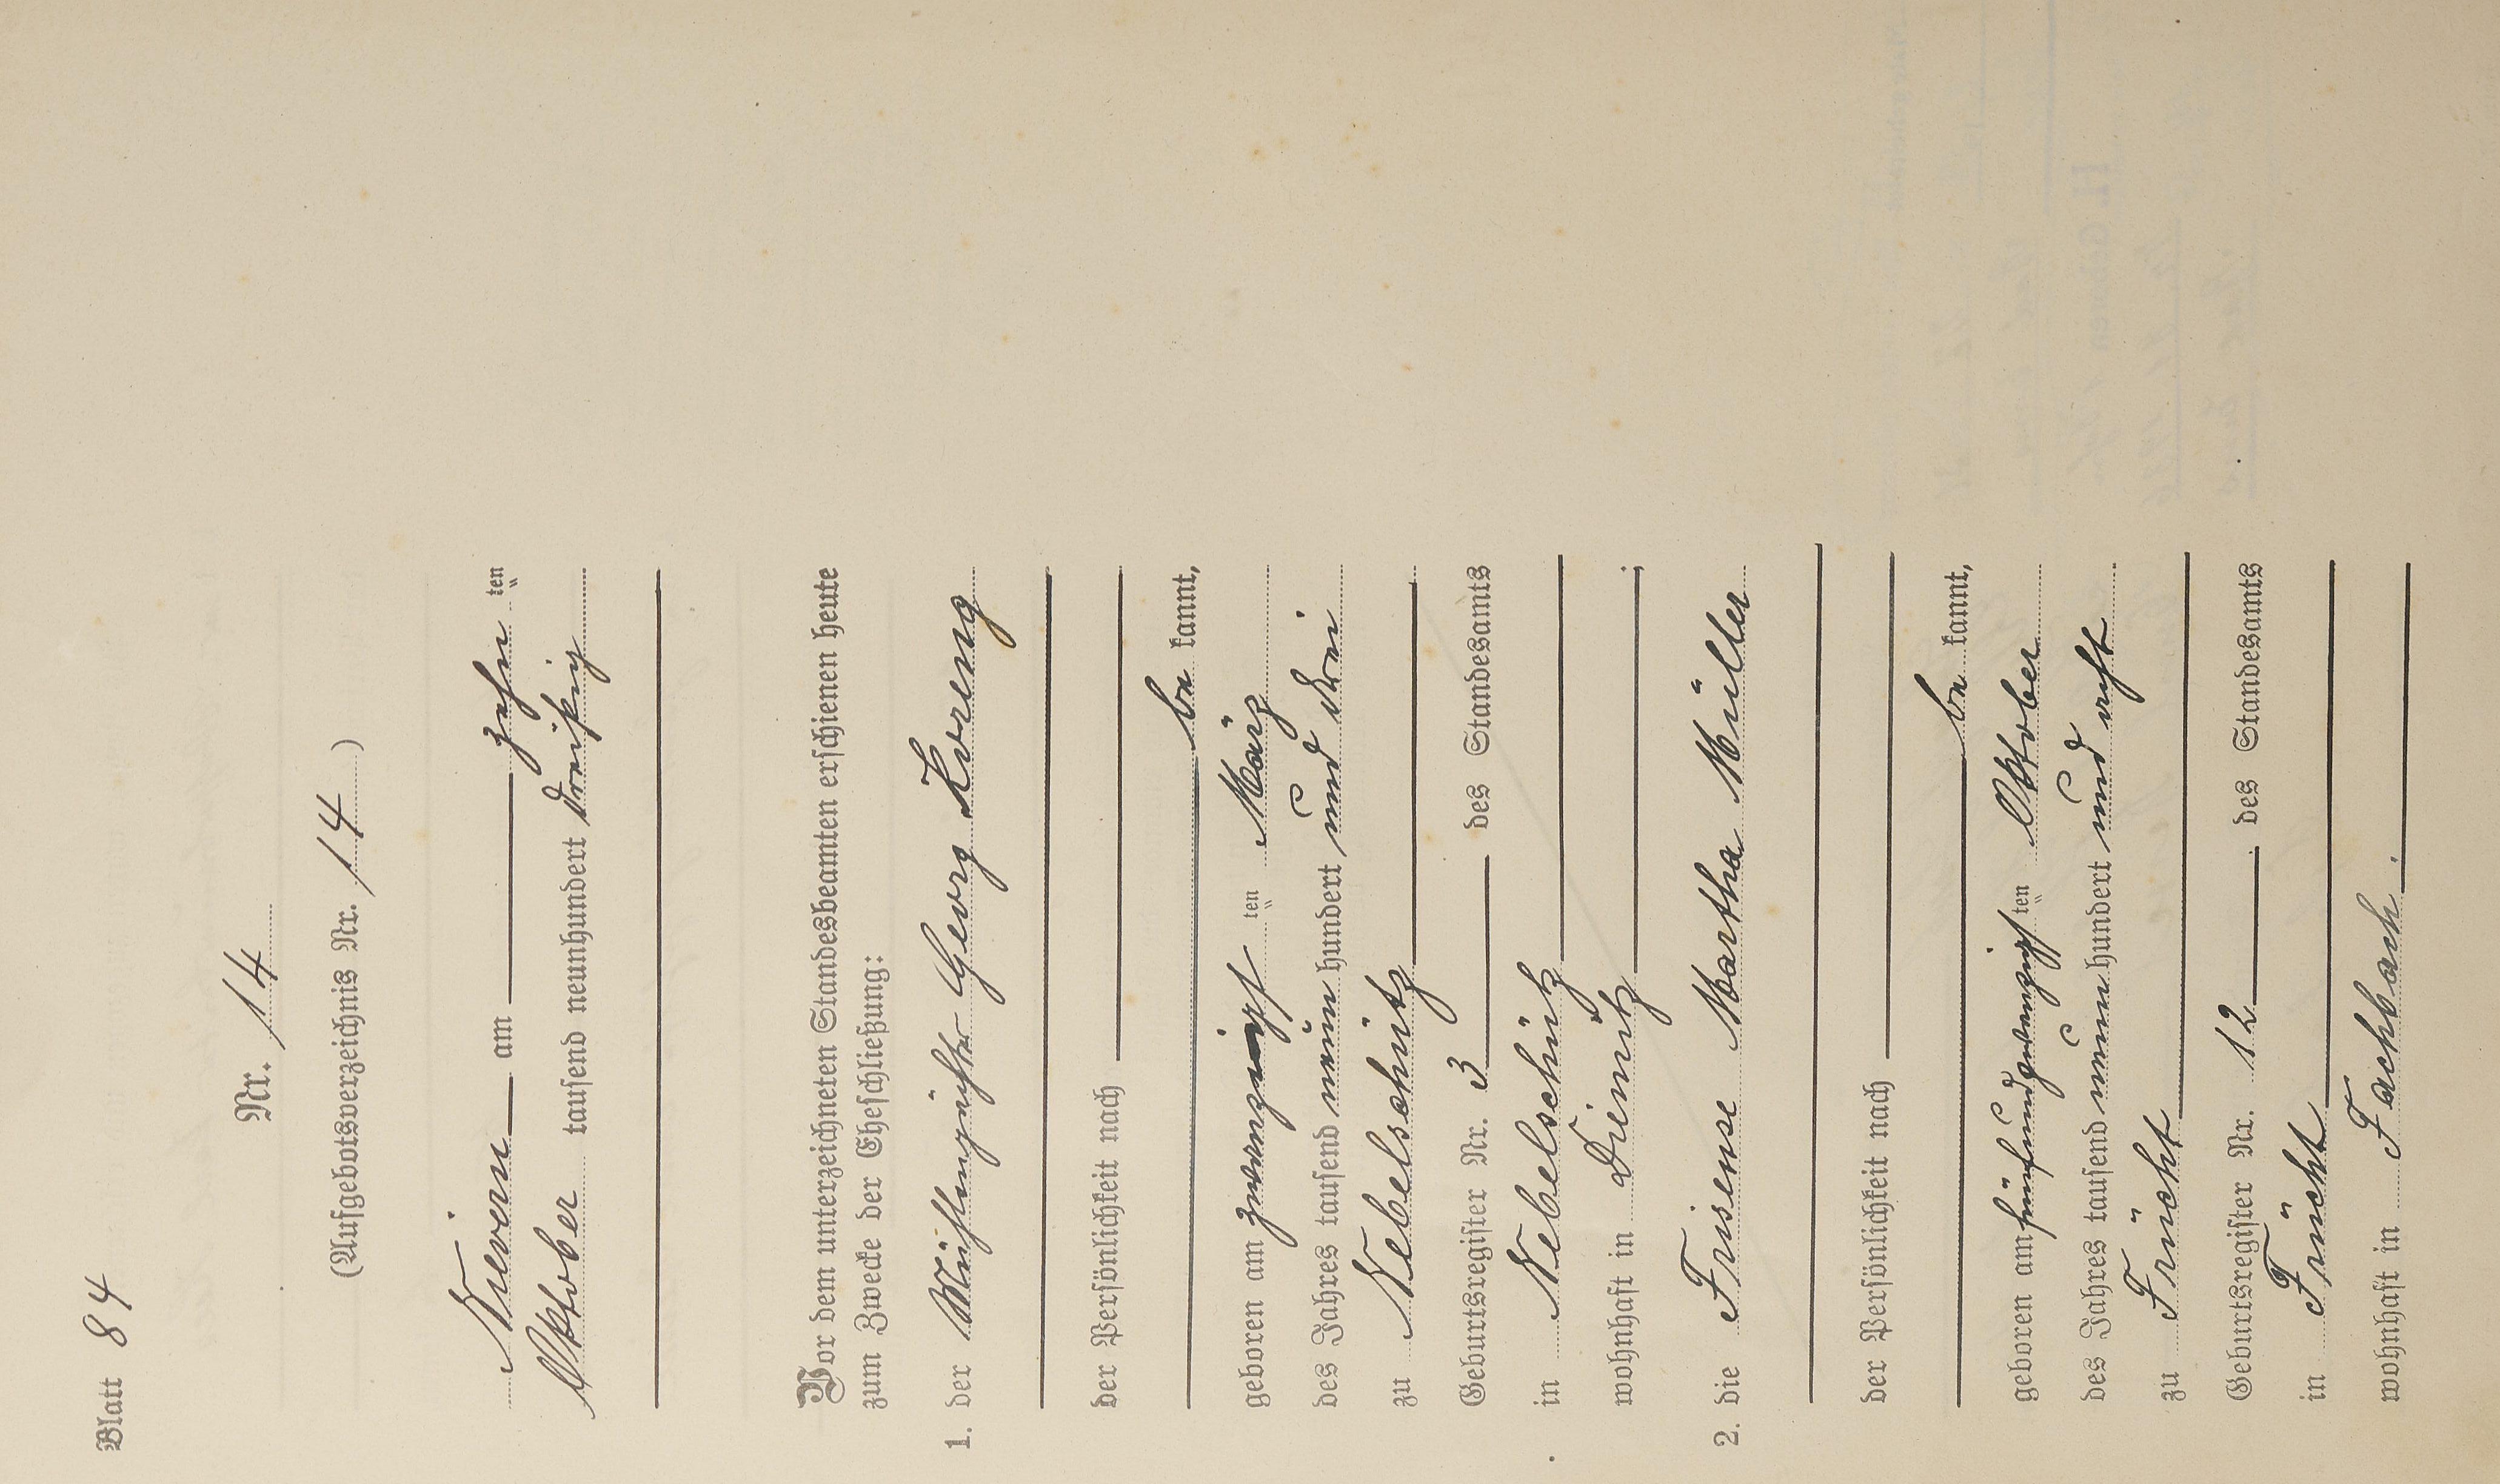 Blatt 84
Nr. 14
(Aufgebotsverzeichnis Nr. 14)
Nievern am zehn ten
Oktober tausend neunhundert dreißig
Vor dem unterzeichneten Standesbeamten erschienen heute
zum Zwecke der Eheschließung:
1. der Georg Koreng
der Persönlichkeit nach
be kannt,
geboren am zwanzigst ten März
des Jahres tausend neun hundert und drei
zu Nebelschütz
Geburtsregister Nr. 3 des Standesamts
in Nebelschütz
wohnhaft in Dienitz;
2. die Friseuse Martha Müller
der Persönlichkeit nach
be kannt,
geboren am fünfundzwanzigst ten Oktober
des Jahres tausend neun hundert und acht
zu Frücht
Geburtsregister Nr. 12 des Standesamts
in Frücht
wohnhaft in Fachbach.